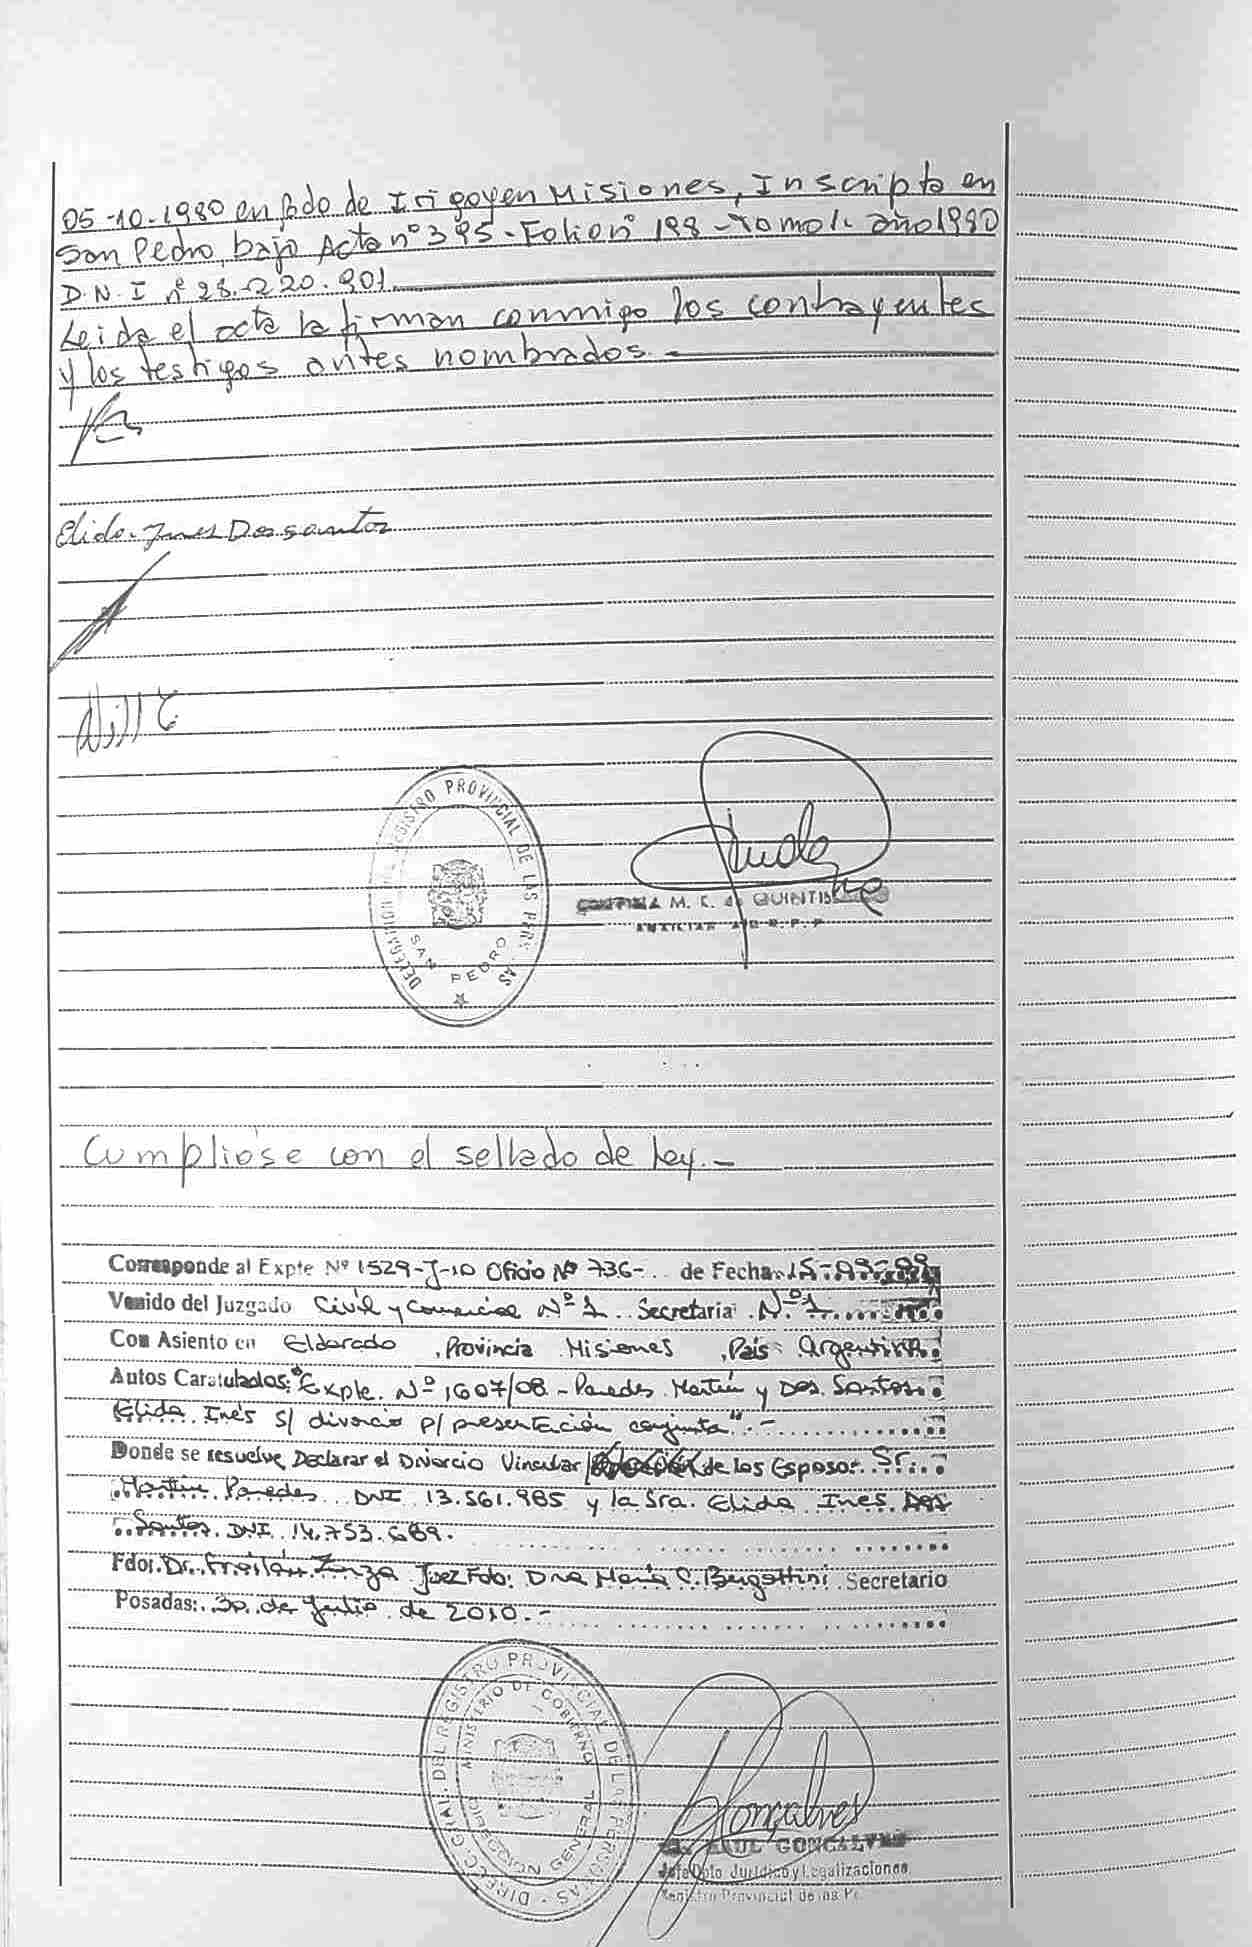 05-10-1980 en Bdo de Irigoyen Misiones, Inscripta en
San Pedro, bajo Acta nº 395 - Folio nº 198 - Tomo 1- año 1980
D.N.I nº 28.220.901.
Leida el acta la firman conmigo los contrayentes
y los testigos antes nombrados.-
Elida Ines Dossantos
DELEGACION REGISTRO PROVINCIAL DE LAS PERSONAS
SAN PEDRO
M. K. de QUINTI
AUXILIAR
Cumplióse con el sellado de Ley.-
Corresponde al Expte Nº 1529-J-10 Oficio Nº 736- de Fecha 15-09-09
Venido del Juzgado Civil y Comercial Nº 1 Secretaria Nº 1
Con Asiento en Eldorado, Provincia Misiones, País: Argentina
Autos Caratulados: "Expte. Nº 1607/08 - Paredes Martin y Dos Santos
Elida Inés s/ divorcio p/ presentación conjunta".-
Donde se resuelve, Declarar el Divorcio Vincular de los Esposos: Sr.
Martin Paredes DNI 13.561.985 y la Sra. Elida Ines Dos
Santos DNI 14.753.689.
Fdo: Dr. Juez Fdo: Dra Maria C. Bergottini Secretario
Posadas: 30 de Julio de 2010.-
DIRECC. GRAL DEL REGISTRO PROVINCIAL DE LAS PERSONAS
MINISTERIO DE GOBIERNO
DIRECCION GENERAL
Gonçalves
RAUL GONCALVES
Jefe Dpto Jurídico y Legalizaciones
Registro Provincial de las Pe